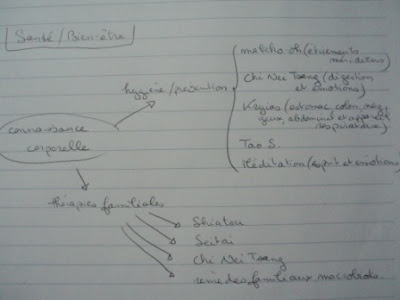 Santé/Bien-être
hygiène/prévention
makko oh (étirements
méridiens)
Chi Nei Tsang (digestion
et émotions)
Kryias (estomac, colon, nez,
yeux, abdominal et appareil
respiratoire)
Tao S.
Méditation (esprit et émotions)
connaissance
corporelle
thérapies familiales
Shiatsu
Seitai
Chi Nei Tsang
remèdes familiaux macrobio